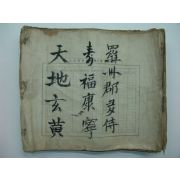 羅州郡多侍
壽福康寧
天地玄黃